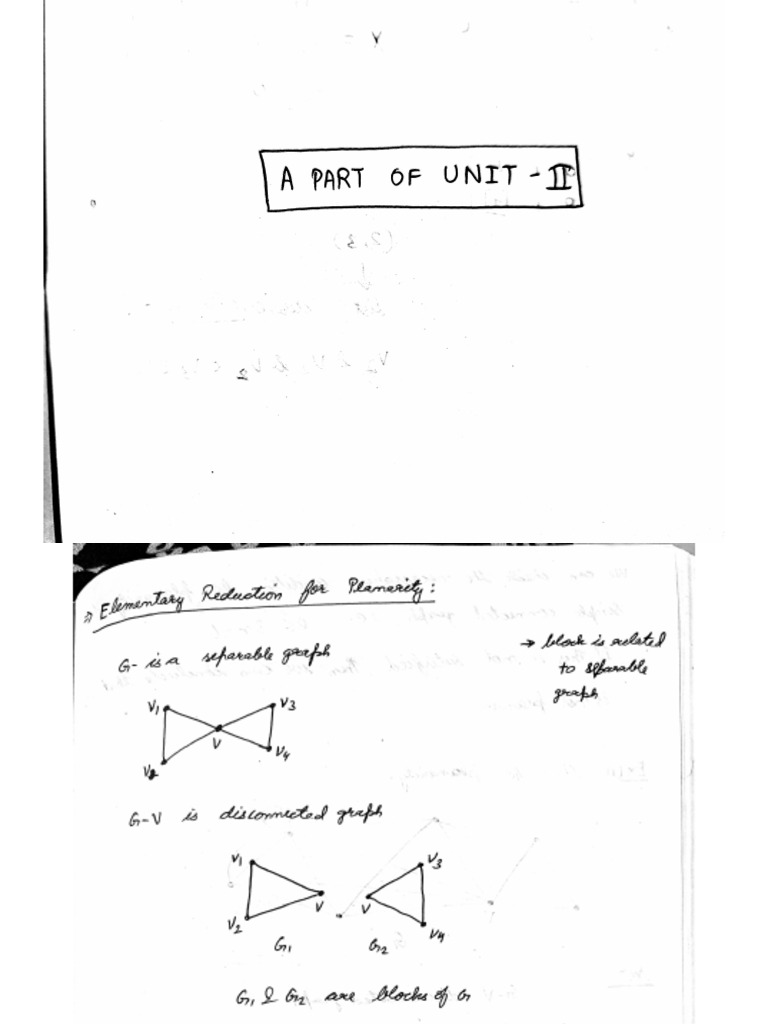 A PART OF UNIT - II
⇒ Elementary Reduction for Planarity:
G- is a separable graph
→ block is related
to separable
graph
V1
V3
V
V2
V4
G-V is disconnected graph
V1
V3
V
V
V2
V4
G1
G2
G1 & G2 are blocks of G